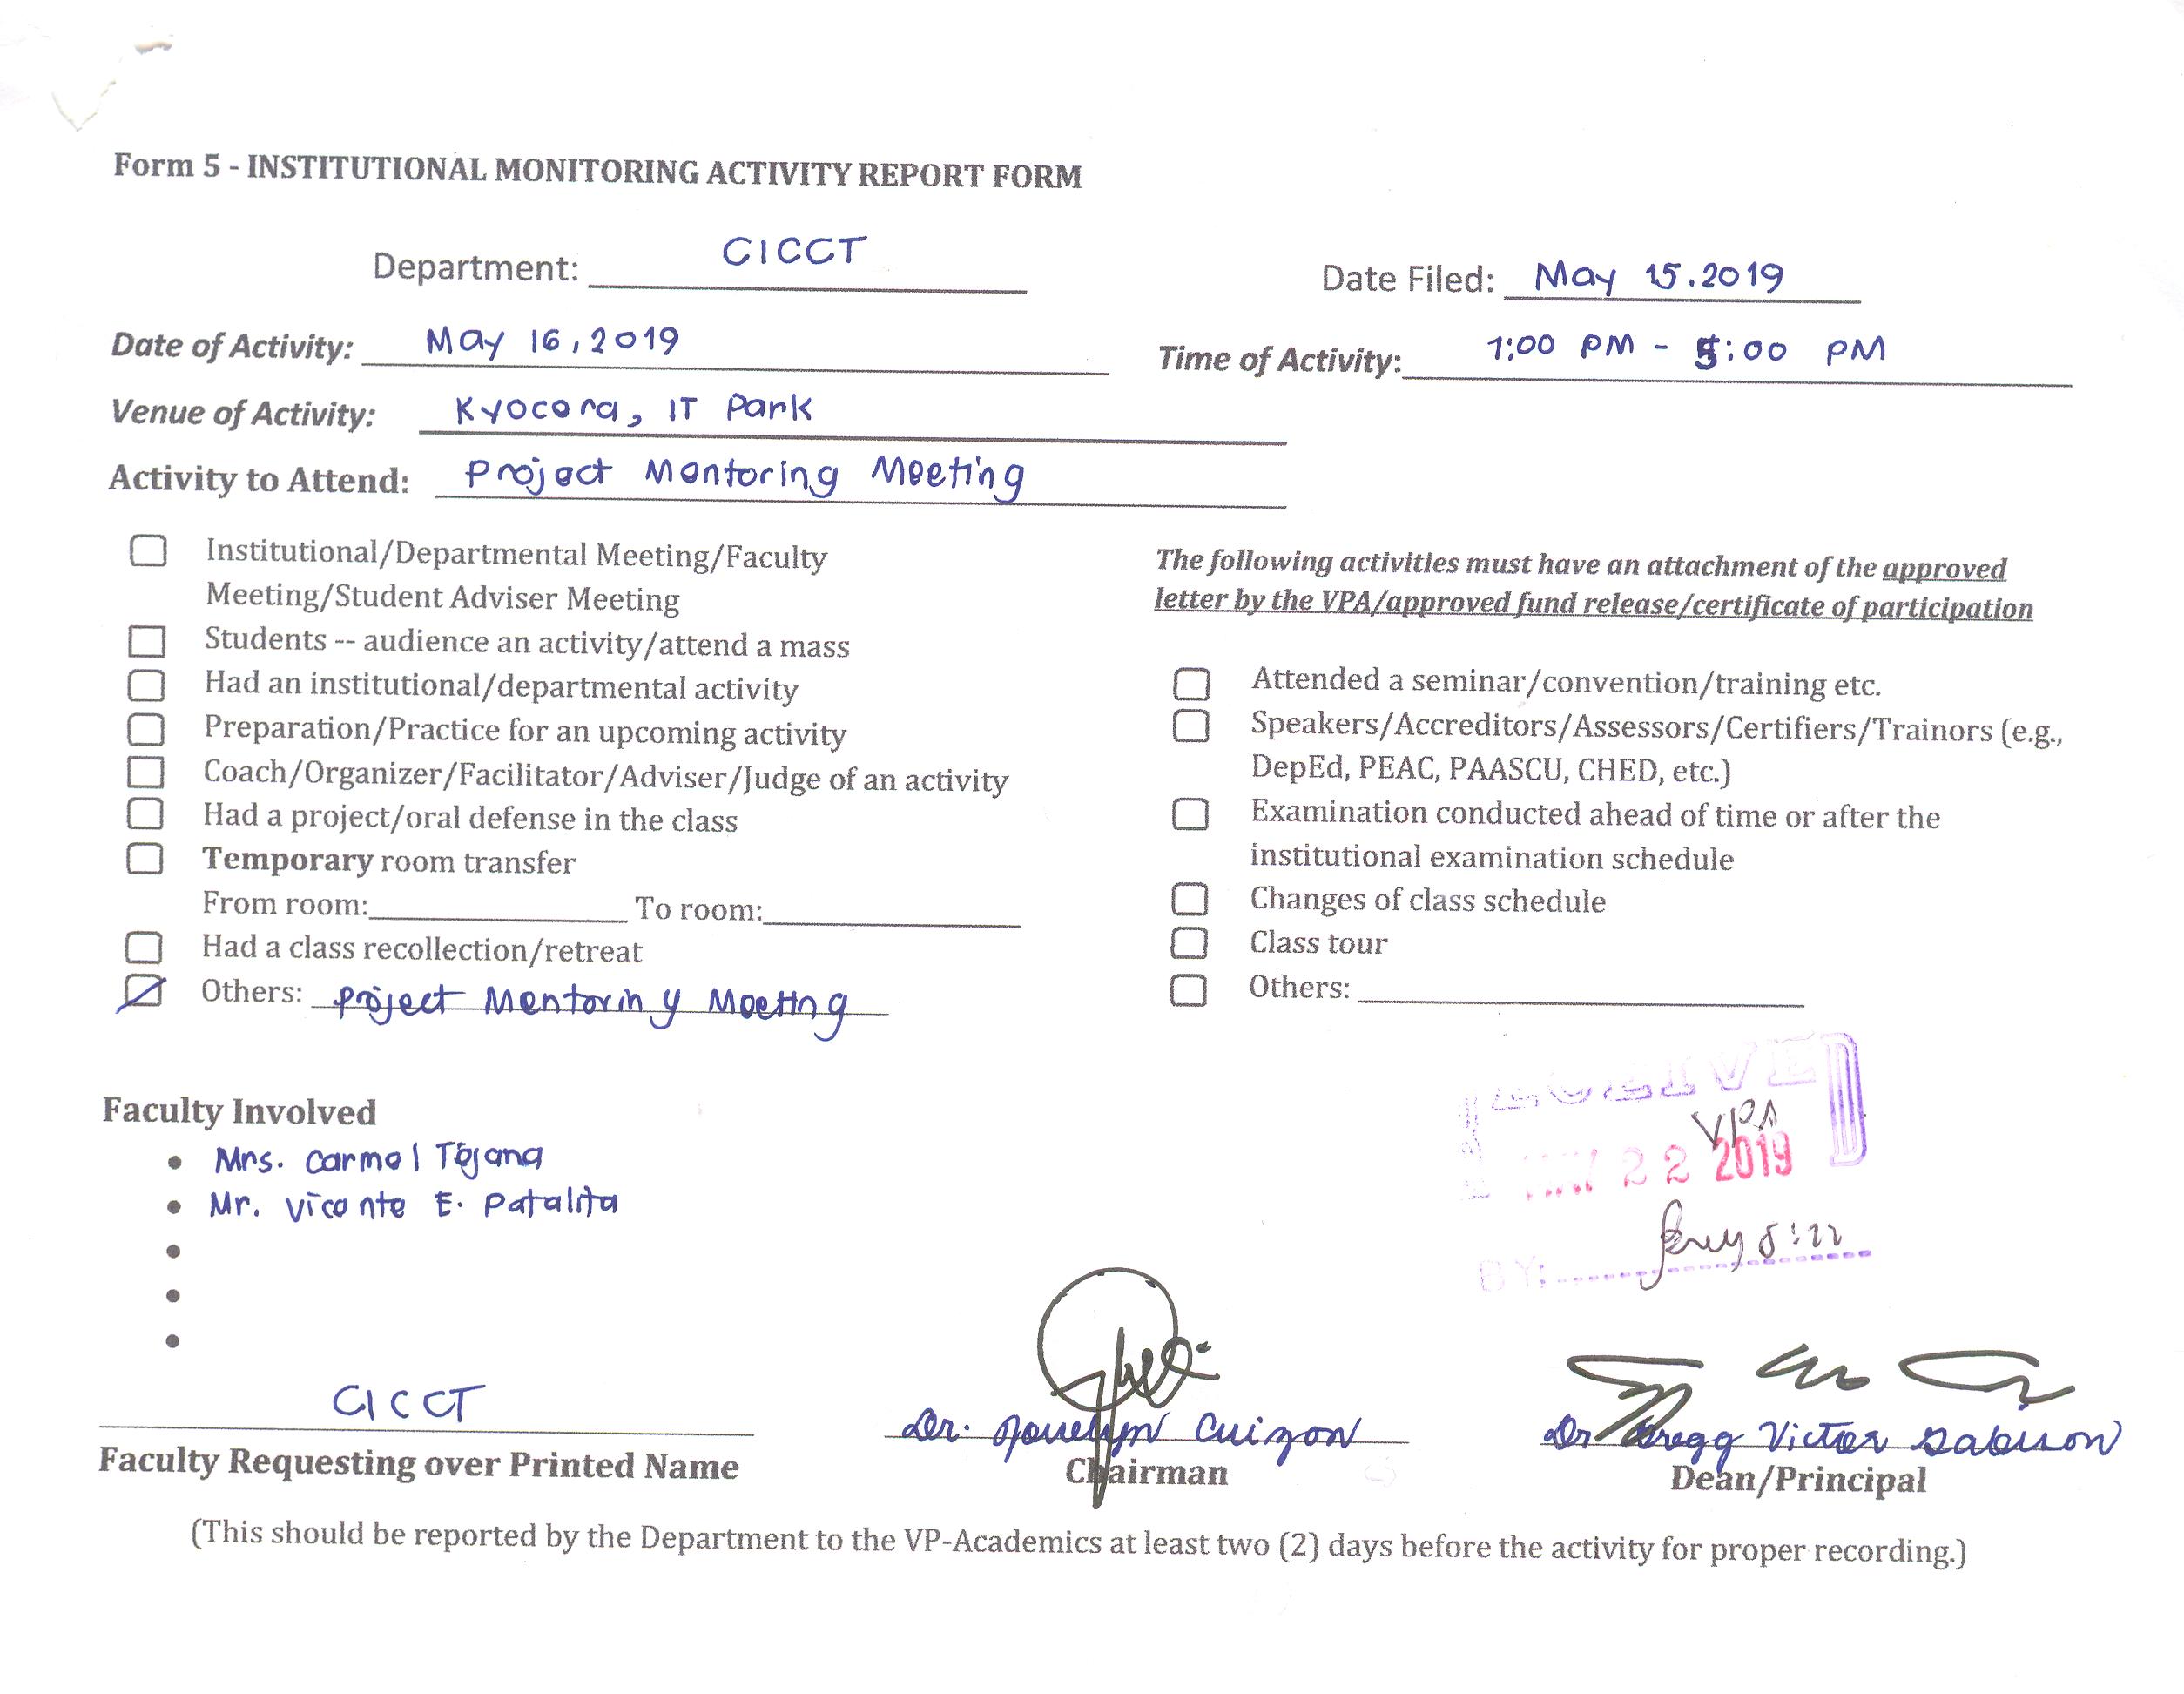 Form 5 - INSTITUTIONAL MONITORING ACTIVITY REPORT FORM
Department: CICCT
Date Filed: May 15.2019
Date of Activity: May 16,2019
Time of Activity: 1:00 PM - 5:00 PM
Venue of Activity: Kyocera, IT Park
Activity to Attend: Project Mentoring Meeting
Institutional/Departmental Meeting/Faculty
Meeting/Student Adviser Meeting
Students -- audience an activity/attend a mass
Had an institutional/departmental activity
Preparation/Practice for an upcoming activity
Coach/Organizer/Facilitator/Adviser/Judge of an activity
Had a project/oral defense in the class
Temporary room transfer
From room: To room:
Had a class recollection/retreat
Others: Project Mentoring Meeting
The following activities must have an attachment of the approved
letter by the VPA/approved fund release/certificate of participation
Attended a seminar/convention/training etc.
Speakers/Accreditors/Assessors/Certifiers/Trainors (e.g.,
DepEd, PEAC, PAASCU, CHED, etc.)
Examination conducted ahead of time or after the
institutional examination schedule
Changes of class schedule
Class tour
Others:
RECEIVED
VPA
22 2019
BY: 8:22
Faculty Involved
• Mrs. Carmel Tejana
• Mr. Vicente E. Patalita
•
•
•
CICCT
Faculty Requesting over Printed Name
Dr. Jovelyn Cuizon
Chairman
Dr Gregg Victor Gabison
Dean/Principal
(This should be reported by the Department to the VP-Academics at least two (2) days before the activity for proper recording.)